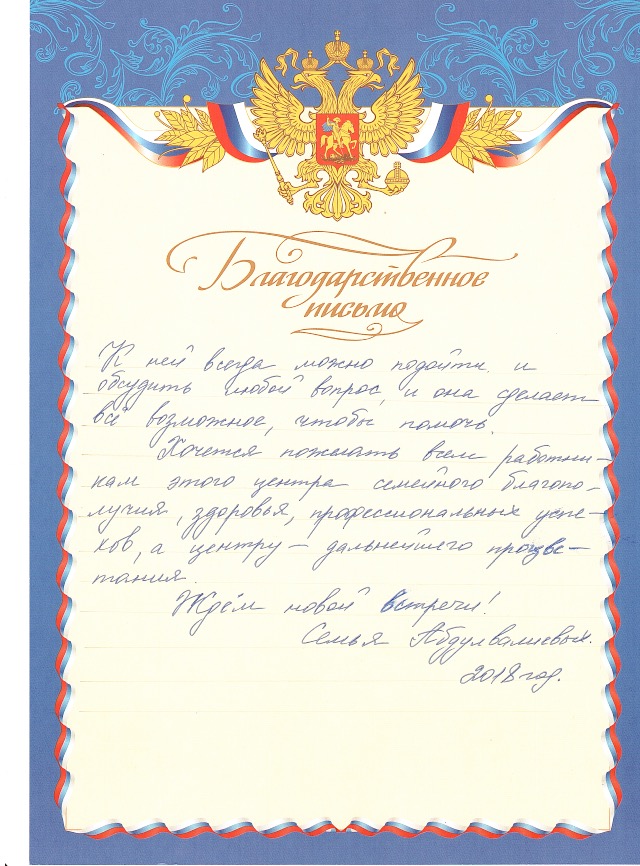 Благодарственное
письмо
К ней всегда можно подойти и
обсудить любой вопрос, и она сделает
всё возможное, чтобы помочь.
Хочется пожелать всем работни-
кам этого центра семейного благопо-
лучия, здоровья, профессиональных успе-
хов, а центру – дальнейшего процве-
тания.
Ждём новой встречи!
Семья Абдулвалиевых.
2018 год.